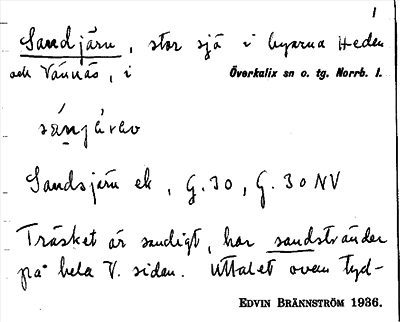 1
Sandjärv, stor sjö i byarna Heden
och Vännäs, i Överkalix sn o. tg. Norrb. l.
sánjárav
Sandsjärv ek, G.30, G.30 NV
Träsket är sandigt, har sandstränder
på hela V. sidan. Uttalet ovan tyd-
EDVIN BRÄNNSTRÖM 1936.